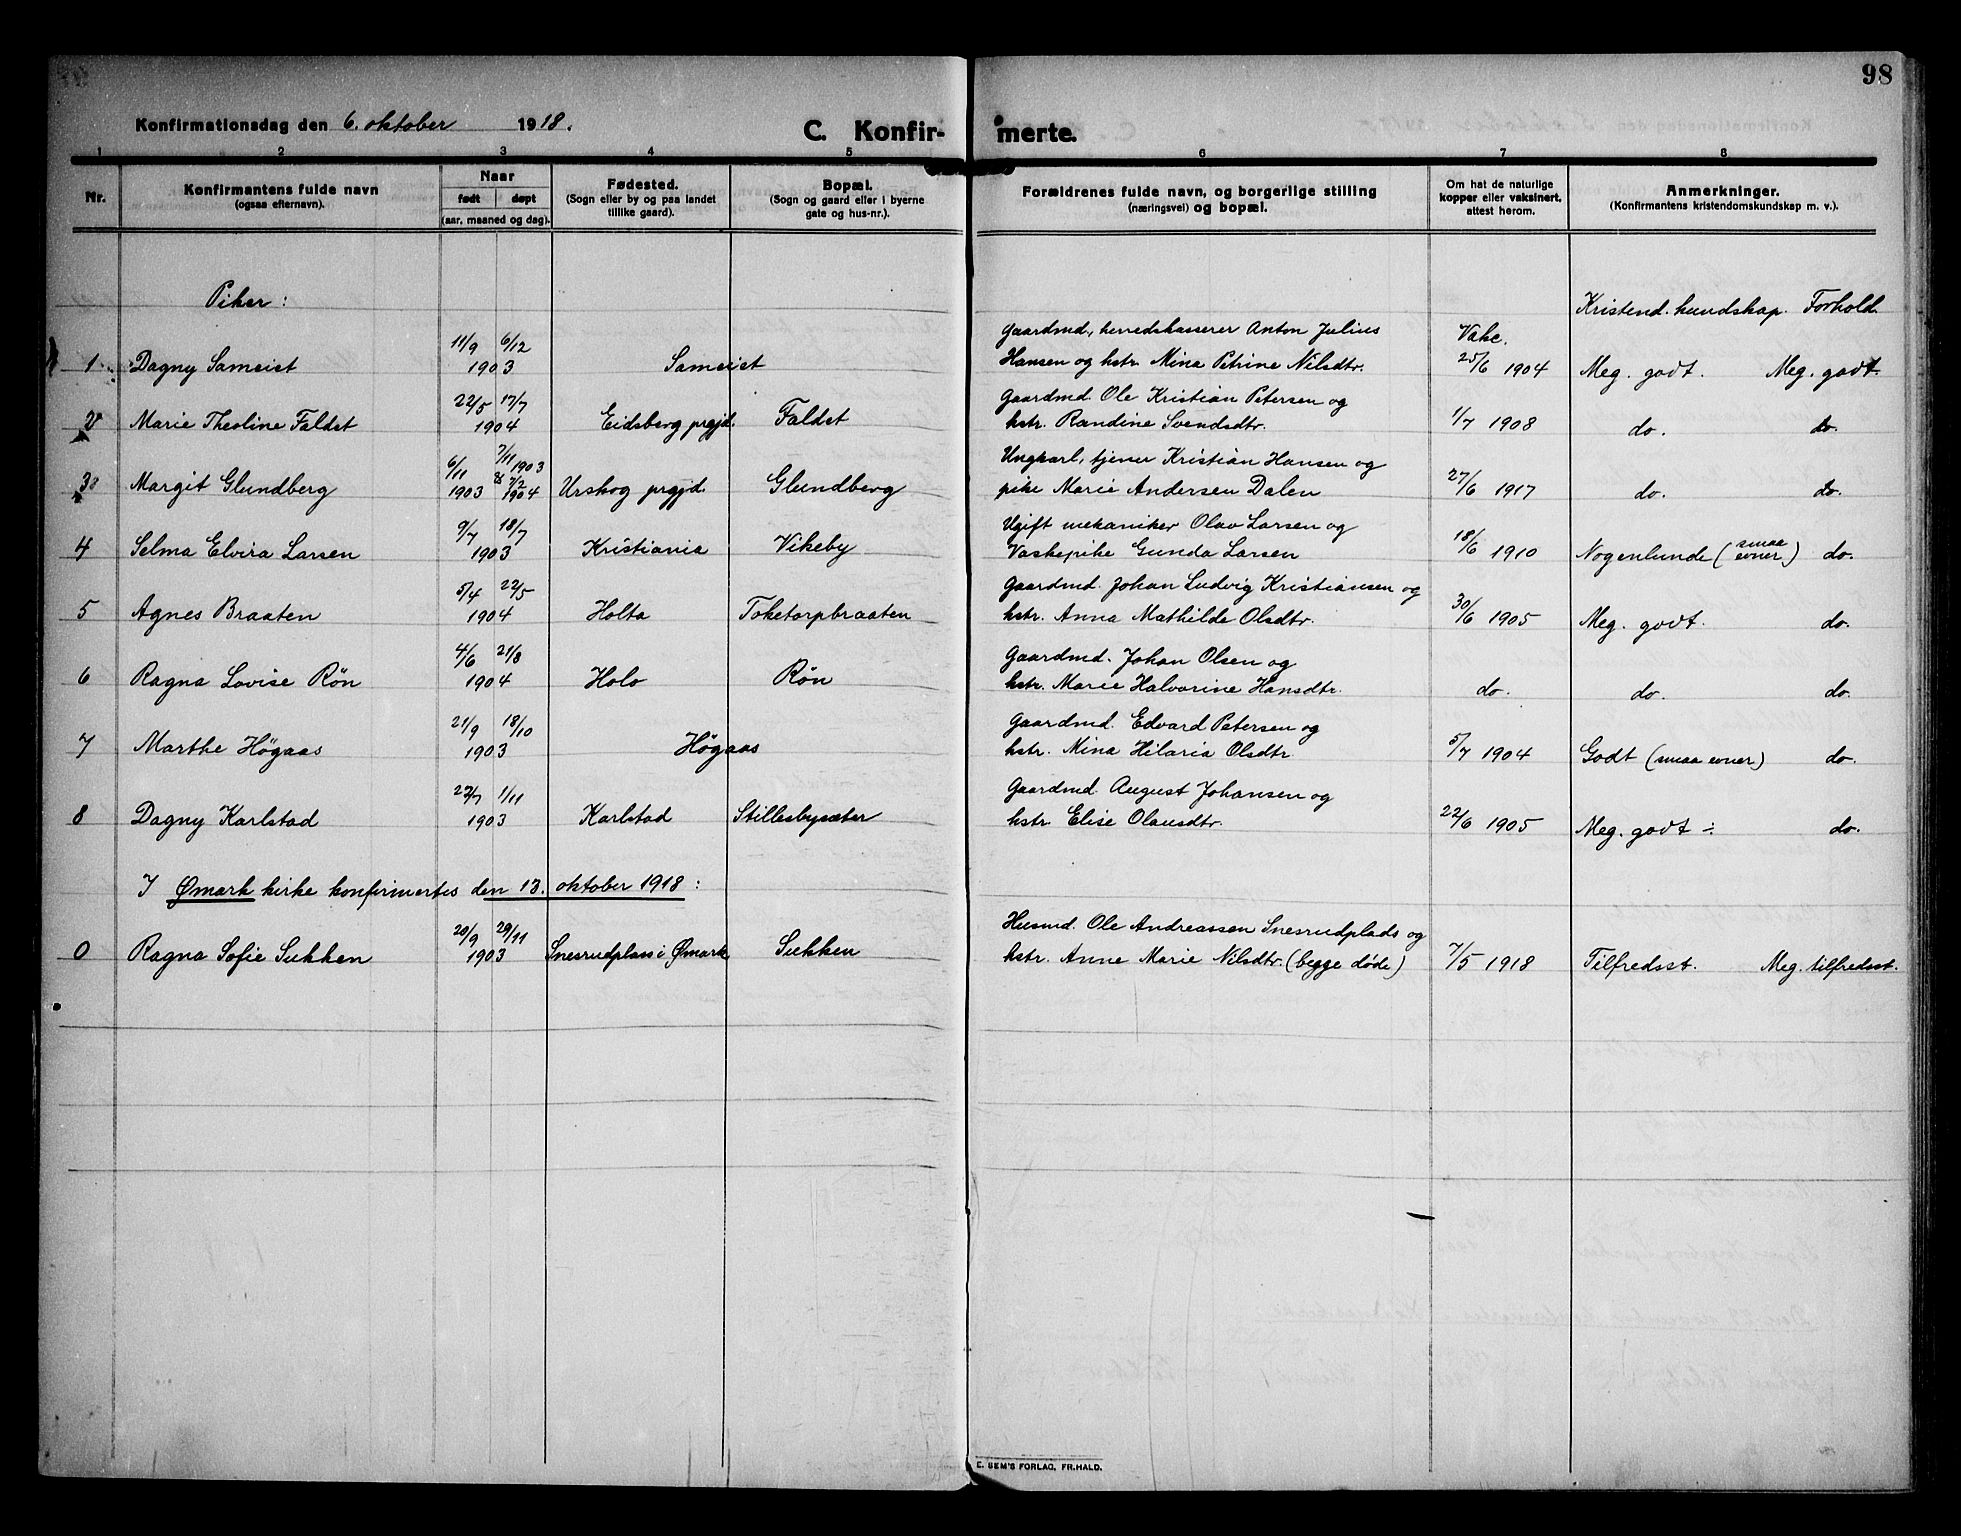 98
Konfirmationsdag den 6. oktober 1918.
C. Konfir- merte.
1 2 3 4 5 6 7 8
Nr. Konfirmantens fulde navn (ogsaa efternavn). Naar født døpt (aar, maaned og dag). Fødested. (Sogn eller by og paa landet tillike gaard). Bopæl. (Sogn og gaard eller i byerne gate og hus-nr.). Forældrenes fulde navn, og borgerlige stilling (næringsvei) og bopæl. Om hat de naturlige kopper eller vaksinert, attest herom. Anmerkninger. (Konfirmantens kristendomskundskap m. v.).
Piker: Kristend. kundskap. Forhold.
11/9 6/12 Gaardmd., herredskasserer Anton Julius Vakc.
1 Dagny Sameist 1903 Sameist Hansen og hstr. Mina Petrine Nilsdtr. 25/6 1904 Meg. godt. Meg. godt.
22/5 17/7 Gaardmd. Ole Kristian Petersen og
2 Marie Theoline Faldet 1904 Eidsberg prgjd. Faldet hstr. Randine Svendsdtr. 1/7 1908 do. do.
6/11 7/11 1903 Ungkarl, tjener Kristian Hansen og
3 Margit Glundberg 1903 & 7/2 1904 Urskog prgjd. Glundberg pike Marie Andersen Dalen 27/6 1917 do. do.
9/7 18/7 Ugift mekaniker Olav Larsen og
4 Selma Elvira Larsen 1903 Kristiania Vikeby Vaskepike Gunda Larsen 18/6 1910 Nogenlunde (smaa evner) do.
5/4 22/5 Gaardmd. Johan Ludvig Kristiansen og
5 Agnes Braaten 1904 Holta Toketorpbraaten hstr. Anna Mathilde Olsdtr. 30/6 1905 Meg. godt. do.
4/6 21/8 Gaardmd. Johan Olsen og
6 Ragna Lovise Røn 1904 Holo Røn hstr. Marie Halvorine Hansdtr. do. do. do.
21/9 18/10 Gaardmd. Edvard Petersen og
7 Marthe Høgaas 1903 Høgaas hstr. Mina Hilaria Olsdtr. 5/7 1904 Godt (smaa evner) do.
27/7 1/11 Gaardmd. August Johansen og
8 Dagny Karlstad 1903 Karlstad Stillesbysæter hstr. Elise Olausdtr. 22/6 1905 Meg. godt ÷ do.
I Ømark kirke konfirmertes den 13. oktober 1918:
20/9 29/11 Husmd. Ole Andreassen Snesrudplads og
0 Ragna Sofie Sukken 1903 Snesrudplass i Ømark Sukken hstr. Anne Marie Nilsdtr. (begge døde) 7/5 1918 Tilfredsst. Meg. tilfredsst.
E. SEM'S FORLAG, FR.HALD.